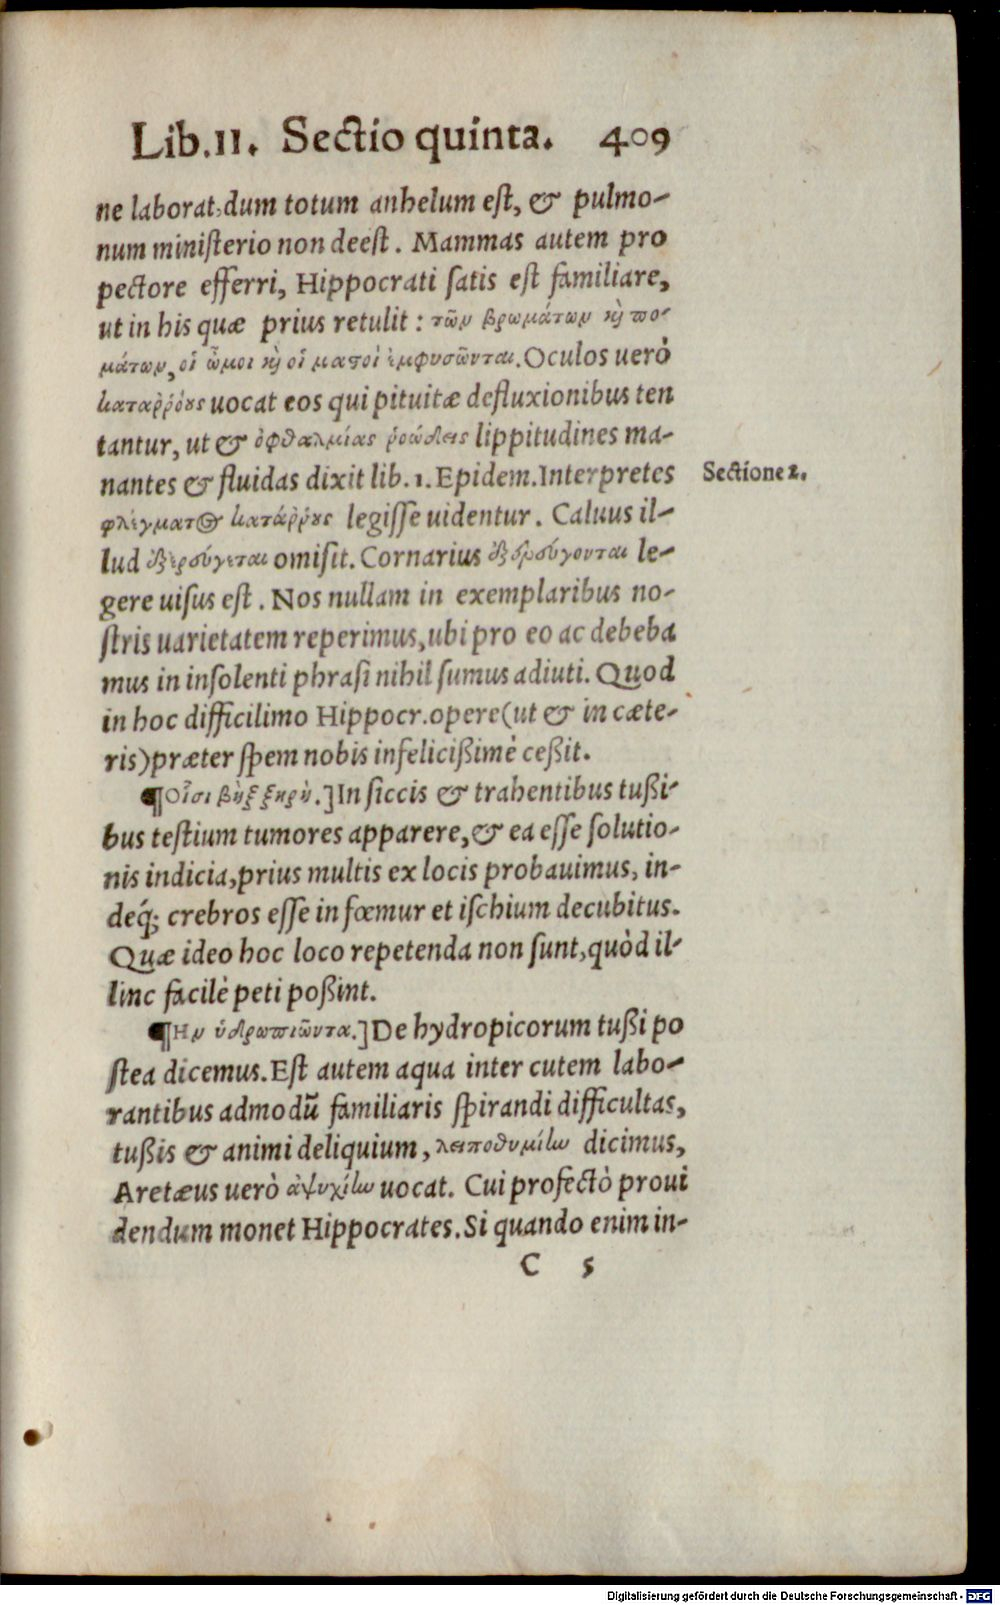 Lib.II. Sectio quinta. 409
ne laborat, dum totum anhelum est, & pulmo-
num ministerio non deest. Mammas autem pro
pectore efferri, Hippocrati satis est familiare,
ut in his quæ prius retulit: τῶν βρωμάτων καὶ πο-
μάτων, οἱ ὦμοι καὶ οἱ μαστοὶ ἐμφυσῶνται. Oculos uerò
καταῤῥόους uocat eos qui pituitæ defluxionibus ten
tantur, ut & ὀφθαλμίας ῥοώδεις lippitudines ma-
nantes & fluidas dixit lib. 1. Epidem. Interpretes
Sectione 2.
φλέγματος κατάῤῥους legisse uidentur. Caluus il-
lud ἐξερεύγεται omisit. Cornarius ἐξερεύγονται le-
gere uisus est. Nos nullam in exemplaribus no-
stris uarietatem reperimus, ubi pro eo ac debeba
mus in insolenti phrasi nihil sumus adiuti. Quod
in hoc difficilimo Hippocr. opere (ut & in cæte-
ris) præter spem nobis infelicißimè ceßit.
¶Οἷσι βὴξ ξηρὴ.] In siccis & trahentibus tußi-
bus testium tumores apparere, & ea esse solutio-
nis indicia, prius multis ex locis probauimus, in-
deq́; crebros esse in fœmur et ischium decubitus.
Quæ ideo hoc loco repetenda non sunt, quòd il-
linc facilè peti poßint.
¶Ην ὑδρωπιῶντα.] De hydropicorum tußi po
stea dicemus. Est autem aqua inter cutem labo-
rantibus admodũ familiaris spirandi difficultas,
tußis & animi deliquium, λειποθυμίαν dicimus,
Aretæus uerò ἀψυχίαν uocat. Cui profectò proui
dendum monet Hippocrates. Si quando enim in-
C 5
Digitalisierung gefördert durch die Deutsche Forschungsgemeinschaft - DFG